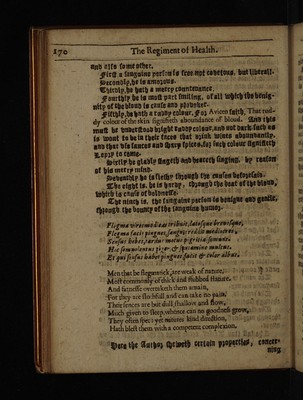 170
The Regiment of Health.
and also some other.
First a sanguine person is free not covetous, but liberall.
Secondly, he is amorous.
Thirdly, he hath a merry countenance.
Fourthly he is most part smiling, of all which the benig-
nity of the bloud is cause and provoker.
Fiftly, he hath a ruddy colour. For Avicen saith, That rud-
dy colour of the skin signifieth aboundance of bloud. And this
must be understood bright ruddy colour, and not dark such as
is wont to be in their faces that drink wines aboundantly,
and that use sauces and sharp spices, for such colour signifieth
Lepry to come.
Sixtly he gladly singeth and heareth singing, by reason
of his merry mind.
Seventhly he is fleshy through the causes beforesaid.
The eight is, he is hardy, through the heat of the bloud,
which is cause of boldnesse.
The ninth is, the sanguine person is benigne and gentle,
through the bounty of the sanguine humor.
Flegma vires modicas tribuit, latosque brevisque,
Flegma facit pingues, sanguis reddit mediocres,
Sensus hebes, tardus motus pigritia somnus
Hic somnolentus piger, &
Et qui sensus hebet pinguis facie & color albus.
Men that be flegmatick, are weak of nature,
Most commonly of thick and stubbed stature,
And fatnesse overtaketh them amain,
For they are slothfull and can take no pain.
Their sences are but dull, shallow and slow,
Much given to sleep, whence can no goodnesse grow,
They often spet: yet natures kind direction,
Hath blest them with a competent complexion.
Here the Author sheweth certain properties, concer-
ning